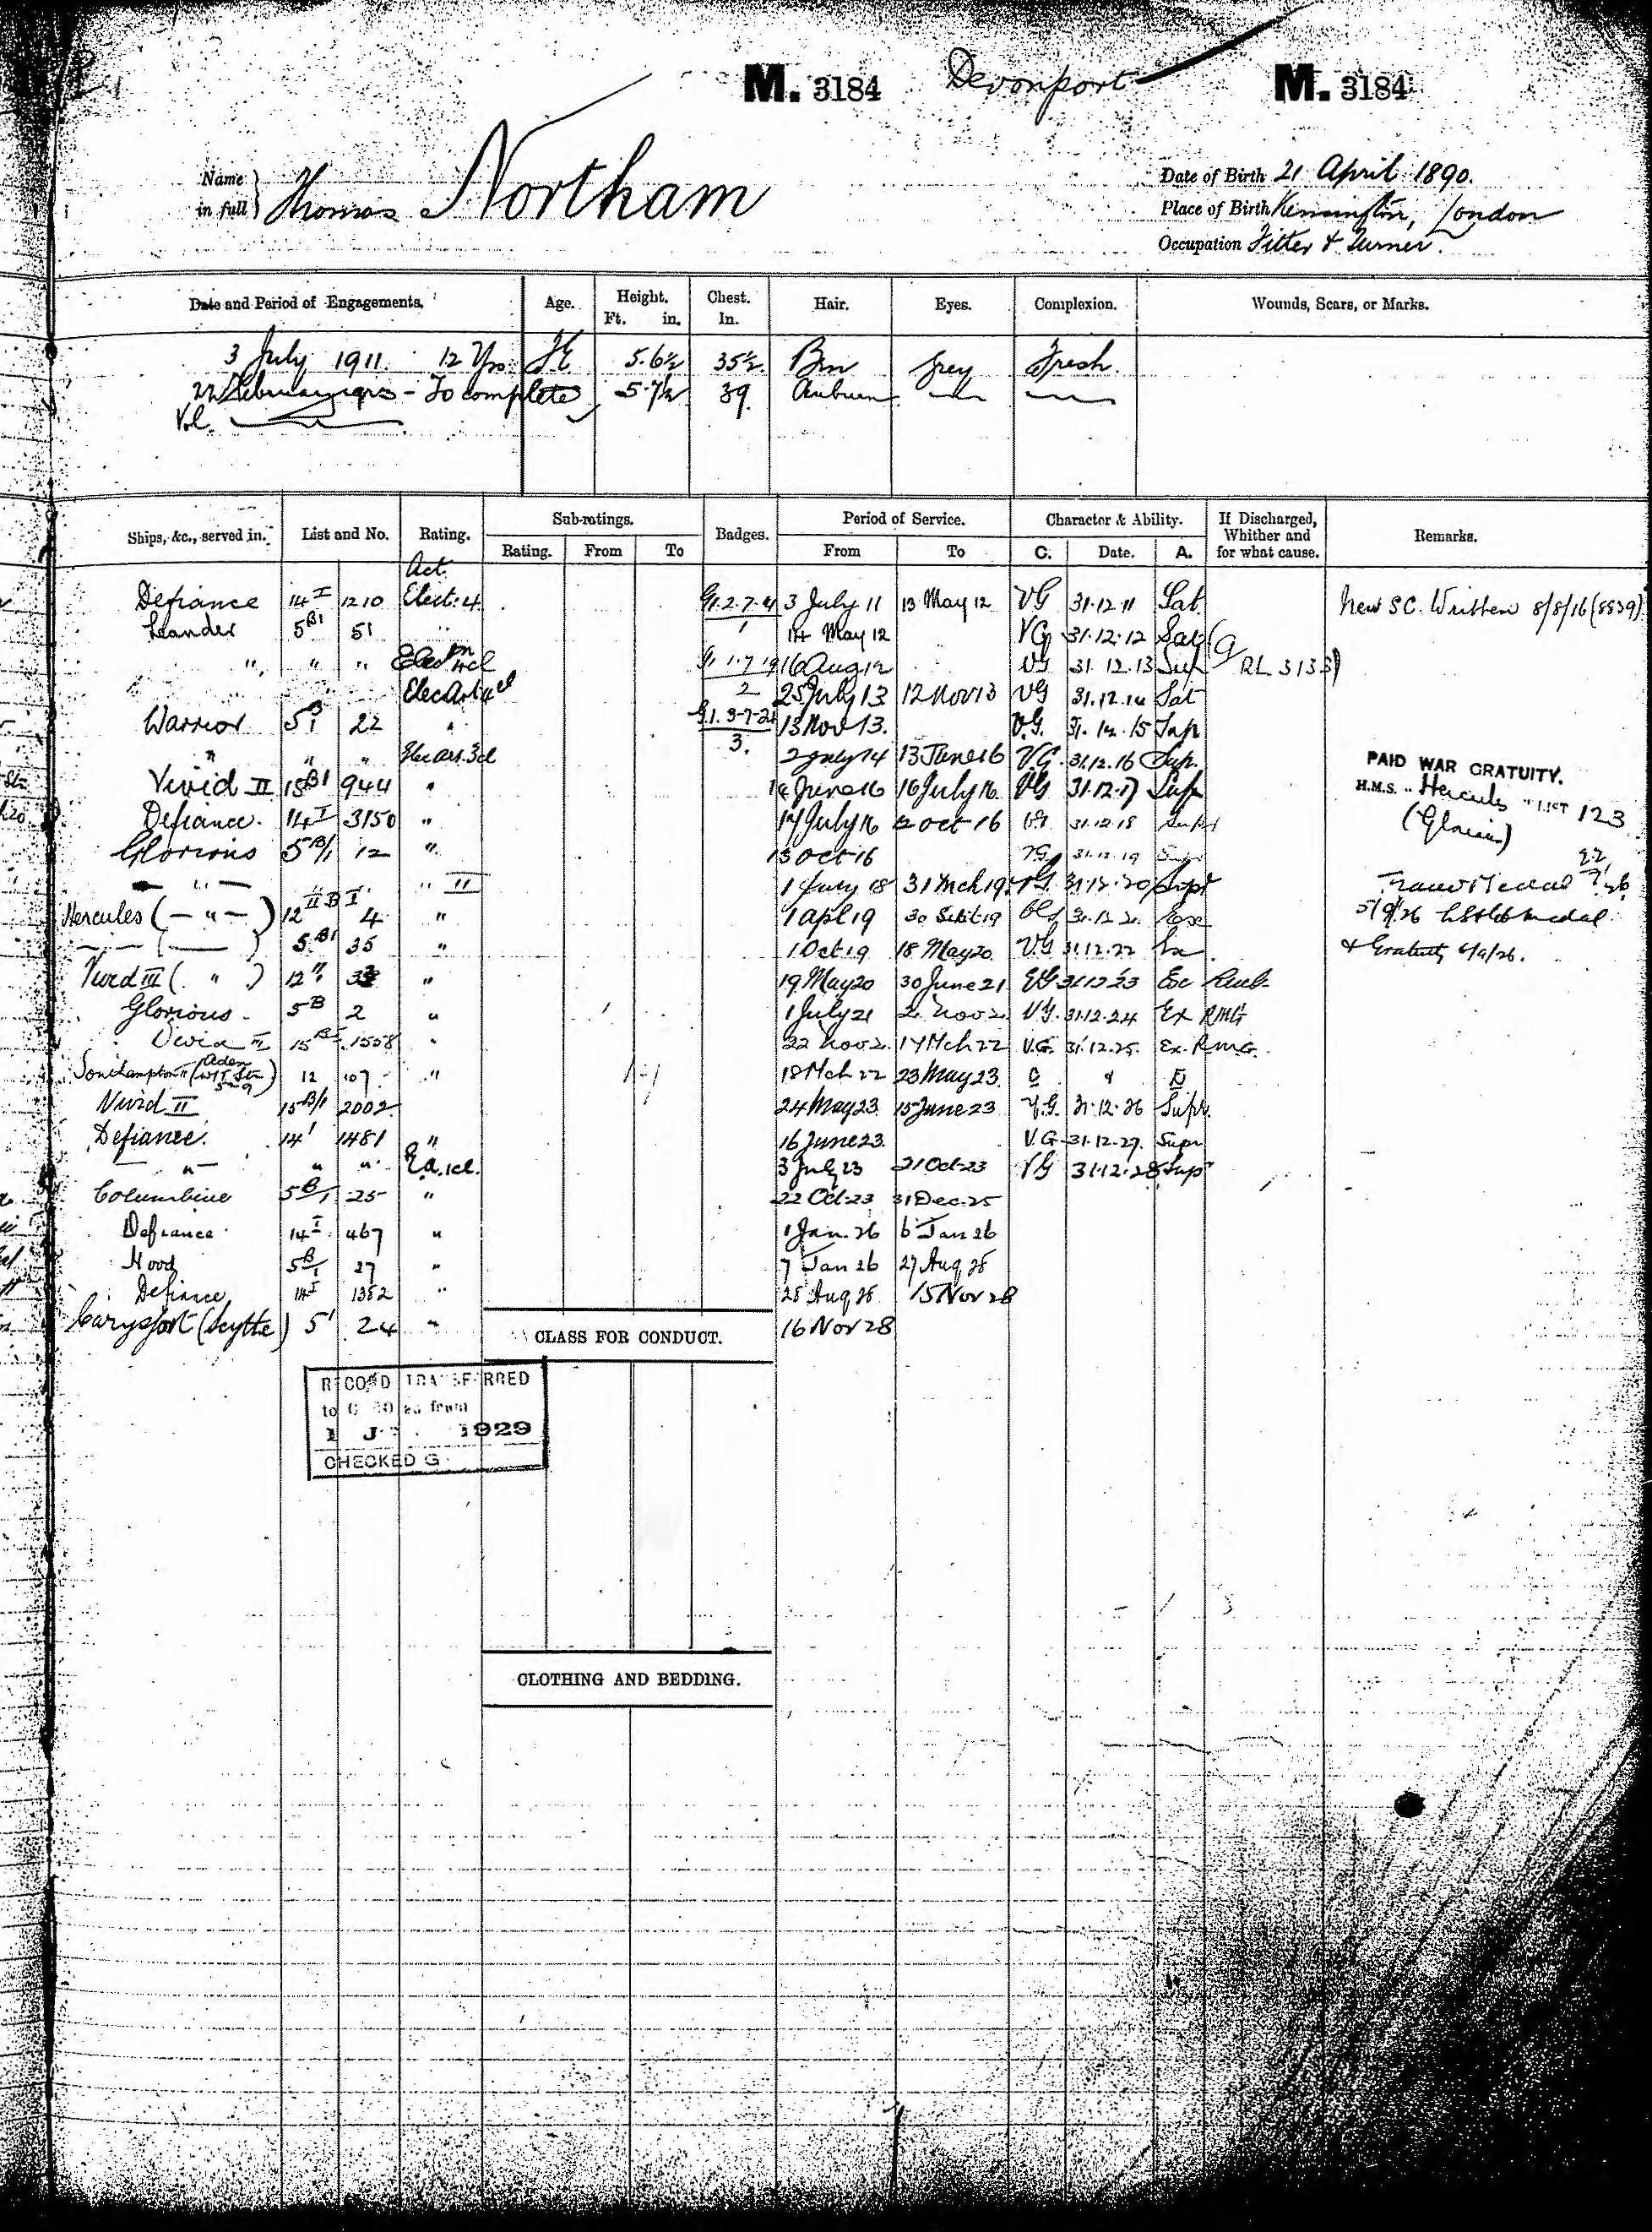 M. 3184 Devonport M. 3184
Name in full } Thomas Northam
Date of Birth 21 April 1890.
Place of Birth Kensington, London
Occupation Fitter & Turner.
Date and Period of Engagements. Age. Height. Ft. in. Chest. In. Hair. Eyes. Complexion. Wounds, Scars, or Marks.
3 July 1911 12 Yrs 5.6½ 35½ Brn Grey Fresh.
22 February - To complete 5.7½ 39. Auburn
Vol.
Ships, &c., served in. List and No. Rating. Sub-ratings. Rating. From To Badges. Period of Service. From To Character & Ability. C. Date. A. If Discharged, Whither and for what cause. Remarks.
Act.
Defiance 14 I 1210 Elect: 4. 3 July 11 13 May 12 VG 31.12.11 Sat. New S.C. Written 8/8/16 (8839)
Leander 5 B1 51 " 1 14 May 12 VG 31.12.12 Sat
" " " 16 Aug 12 VG 31.12.13 Sup RL 3133)
Elec Art 4 cl 2 25 July 13 12 Nov 13 VG 31.12.14 Sat
Warrior 5 B 1 22 " 13 Nov 13. V.G. 31.12.15 Sup
" " " Elec Art. 3 cl 3. 2 July 14 13 June 16 V.G. 31.12.16 Sup.
Vivid II 15 B1 944 " 14 June 16 16 July 16 VG 31.12.17 Sup
Defiance. 14 I 3150 " 17 July 16 2 Oct 16 VG 31.12.18 Supr
Glorious 5 B/1 12 " 3 Oct 16 VG 31.12.19
" " II 1 July 18 31 Mch 19. VG. 31.12.20 Supr
PAID WAR GRATUITY.
H.M.S. Hercules LIST 123
(Glorious)
Hercules ( " ) 12 4 " 1 Apl 19 30 Sept 19 VG 31.12.21 Exc
5 B1 35 " 1 Oct 19 18 May 20. VG 31.12.22 Ex.
5/9/26 medal
& Gratuity 6/9/26.
Vivid III ( " ) 12 " 19 May 20 30 June 21 VG 31.12.23 Exc
Glorious 5 B 2 " 1 July 21 VG. 31.12.24 Ex RMG
Vivid II 15 1558 " 22 Nov 17 Mch 22 V.G. 31.12.25. Ex. RMG.
Southampton (Aden W/T Stn) 12 107 " 18 Mch 22 23 May 23.
Vivid II 15 B/1 2002 24 May 23 15 June 23 V.G. 31.12.26 Supr.
Defiance. 14 I 1481 " 16 June 23. V.G. 31.12.27. Supr
" " " E.A. 1 cl. 3 July 23 21 Oct 23 VG 31.12.28 Sup
Columbine 5 B/1 25 " 22 Oct 23 31 Dec 25
Defiance 14 I 467 " 1 Jan. 26 6 Jan 26
Hood 5 B/1 27 " 7 Jan 26 27 Aug 28
Defiance 14 I 1352 " 28 Aug 28 15 Nov 28
Carysfort (Scythe) 5' 24 " 16 Nov 28
CLASS FOR CONDUCT.
RECORD TRANSFERRED
to from
1 1929
CHECKED G
CLOTHING AND BEDDING.